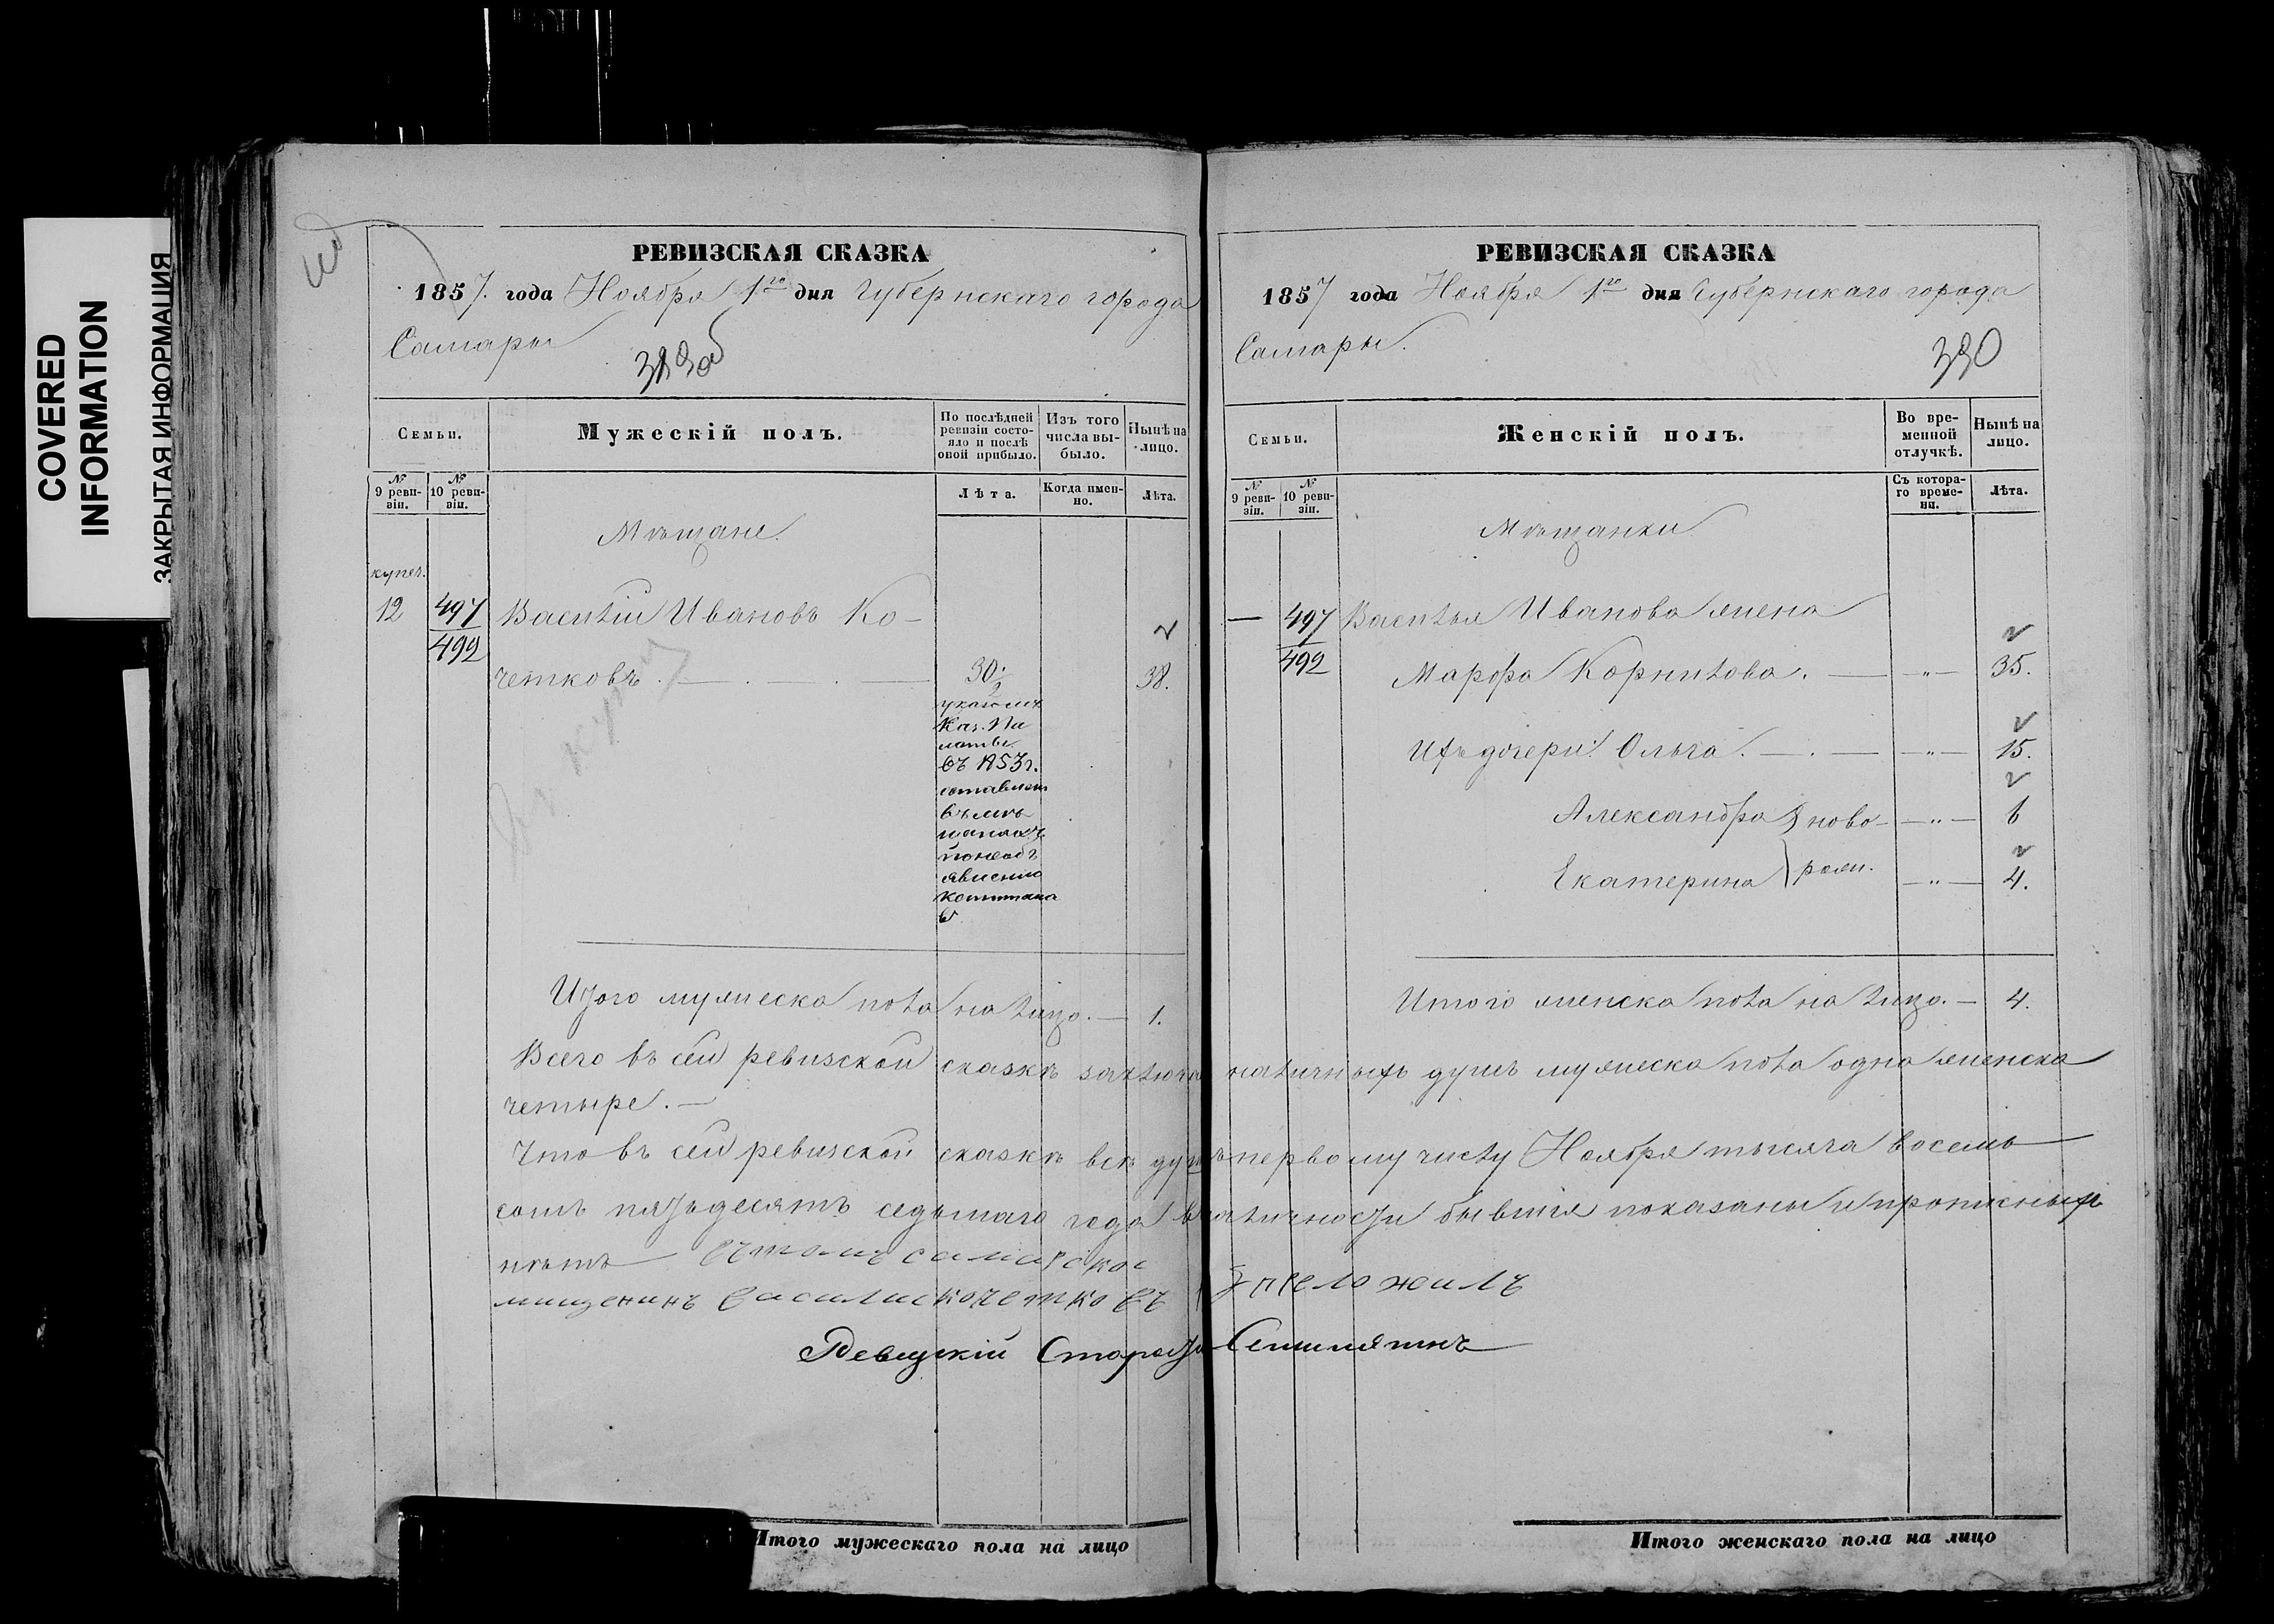 COVERED
INFORMATION
ЗАКРЫТАЯ ИНФОРМАЦИЯ
РЕВИЗСКАЯ СКАЗКА
1857. года Ноября 1го дня Губернскаго города
Самары
Семьи.
Мужескій полъ.
По послѣдней ревизіи состояло и послѣ оной прибыло.
Изъ того числа выбыло.
Нынѣ на лицо.
№ 9 ревизіи.
№ 10 ревизіи.
Лѣта.
Когда именно.
Лѣта.
Мѣщане
купеч.
12
497
492
Василій Ивановъ Ко-
четковъ. 30. 38.
указомъ
Каз. Па
латы
въ 1853 г.
оставленъ
въ мѣ
щанахъ
по необъ
явленію
капитала
Итого мужеска пола на лицо. — 1.
РЕВИЗСКАЯ СКАЗКА
1857 года Ноября 1го дня Губернскаго города
Самары.
390
Семьи.
Женскій полъ.
Во временной отлучкѣ.
Нынѣ на лицо.
№ 9 ревизіи.
№ 10 ревизіи.
Съ котораго времени.
Лѣта.
Мѣщанки
— 497
492
Василья Иванова жена
Марфа Корнилова. — „ — 35.
Ихъ дочери: Ольга. — „ — 15.
Александра } ново- — „ — 6
Екатерина } рожд. — „ — 4.
Итого женска пола на лицо. — 4.
Всего въ сей ревизской сказкѣ наличныхъ душъ мужеска пола одна женска
четыре. —
Что въ сей ревизской сказкѣ всѣ души первому числу Ноября тысяча восемь
сотъ пятьдесятъ седьмаго года въ наличности бывшія показаны и прописныхъ
нѣтъ Въ томъ самарской
мищенинъ Василий Кочетковъ руку приложилъ
Ревизскій Староста
Итого мужескаго пола на лицо
Итого женскаго пола на лицо